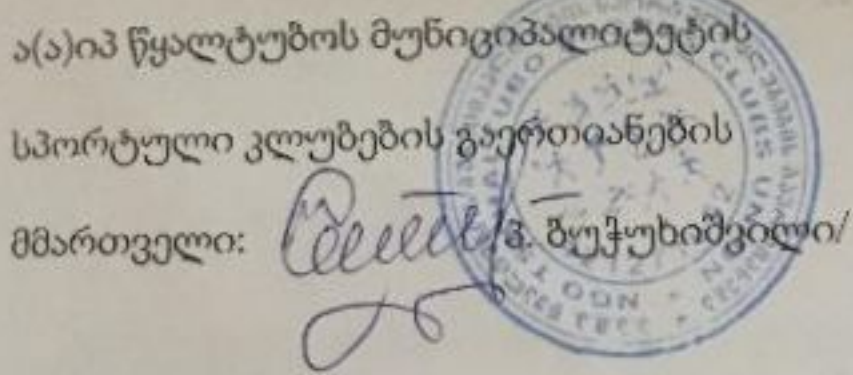 ა(ა)იპ წყალტუბოს მუნიციპალიტეტის
სპორტული კლუბების გაერთიანების
მმართველი: /პ. ბუჭუხიშვილი/
CLUBS UN
NGO